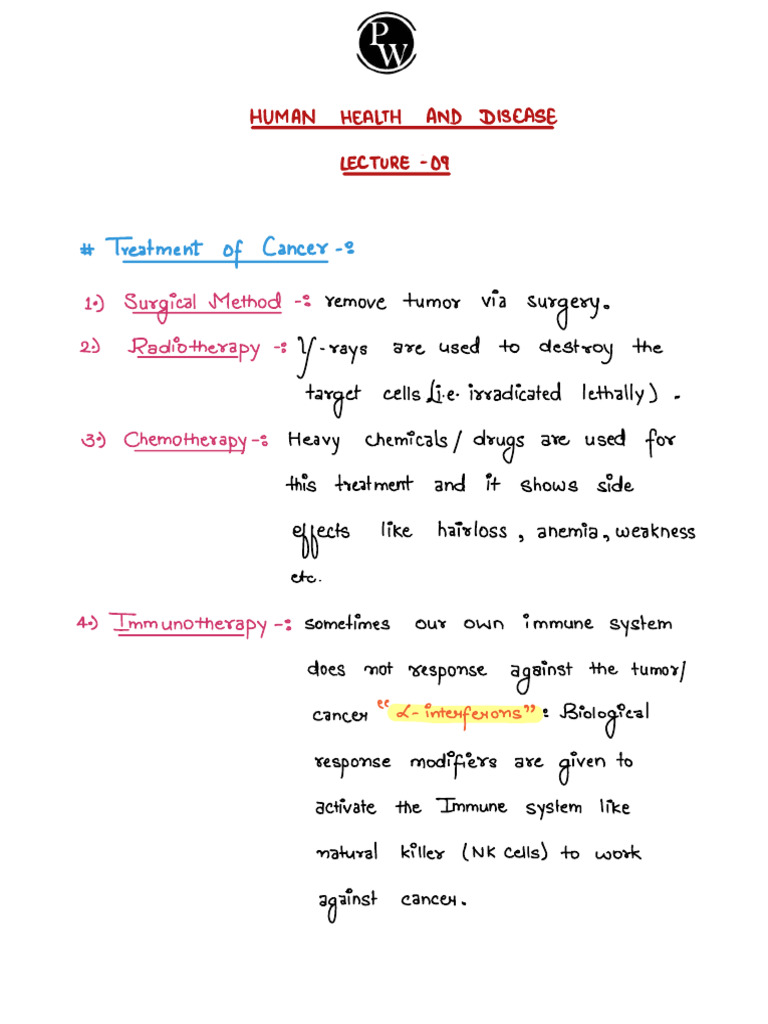 PW
HUMAN HEALTH AND DISEASE
LECTURE - 09
# Treatment of Cancer -:
1.) Surgical Method -: remove tumor via surgery.
2.) Radiotherapy -: γ-rays are used to destroy the
target cells (i.e. irradicated lethally).
3.) Chemotherapy -: Heavy chemicals/ drugs are used for
this treatment and it shows side
effects like hairloss, anemia, weakness
etc.
4.) Immunotherapy -: sometimes our own immune system
does not response against the tumor/
cancer “α-interferons”: Biological
response modifiers are given to
activate the Immune system like
natural killer (NK cells) to work
against cancer.